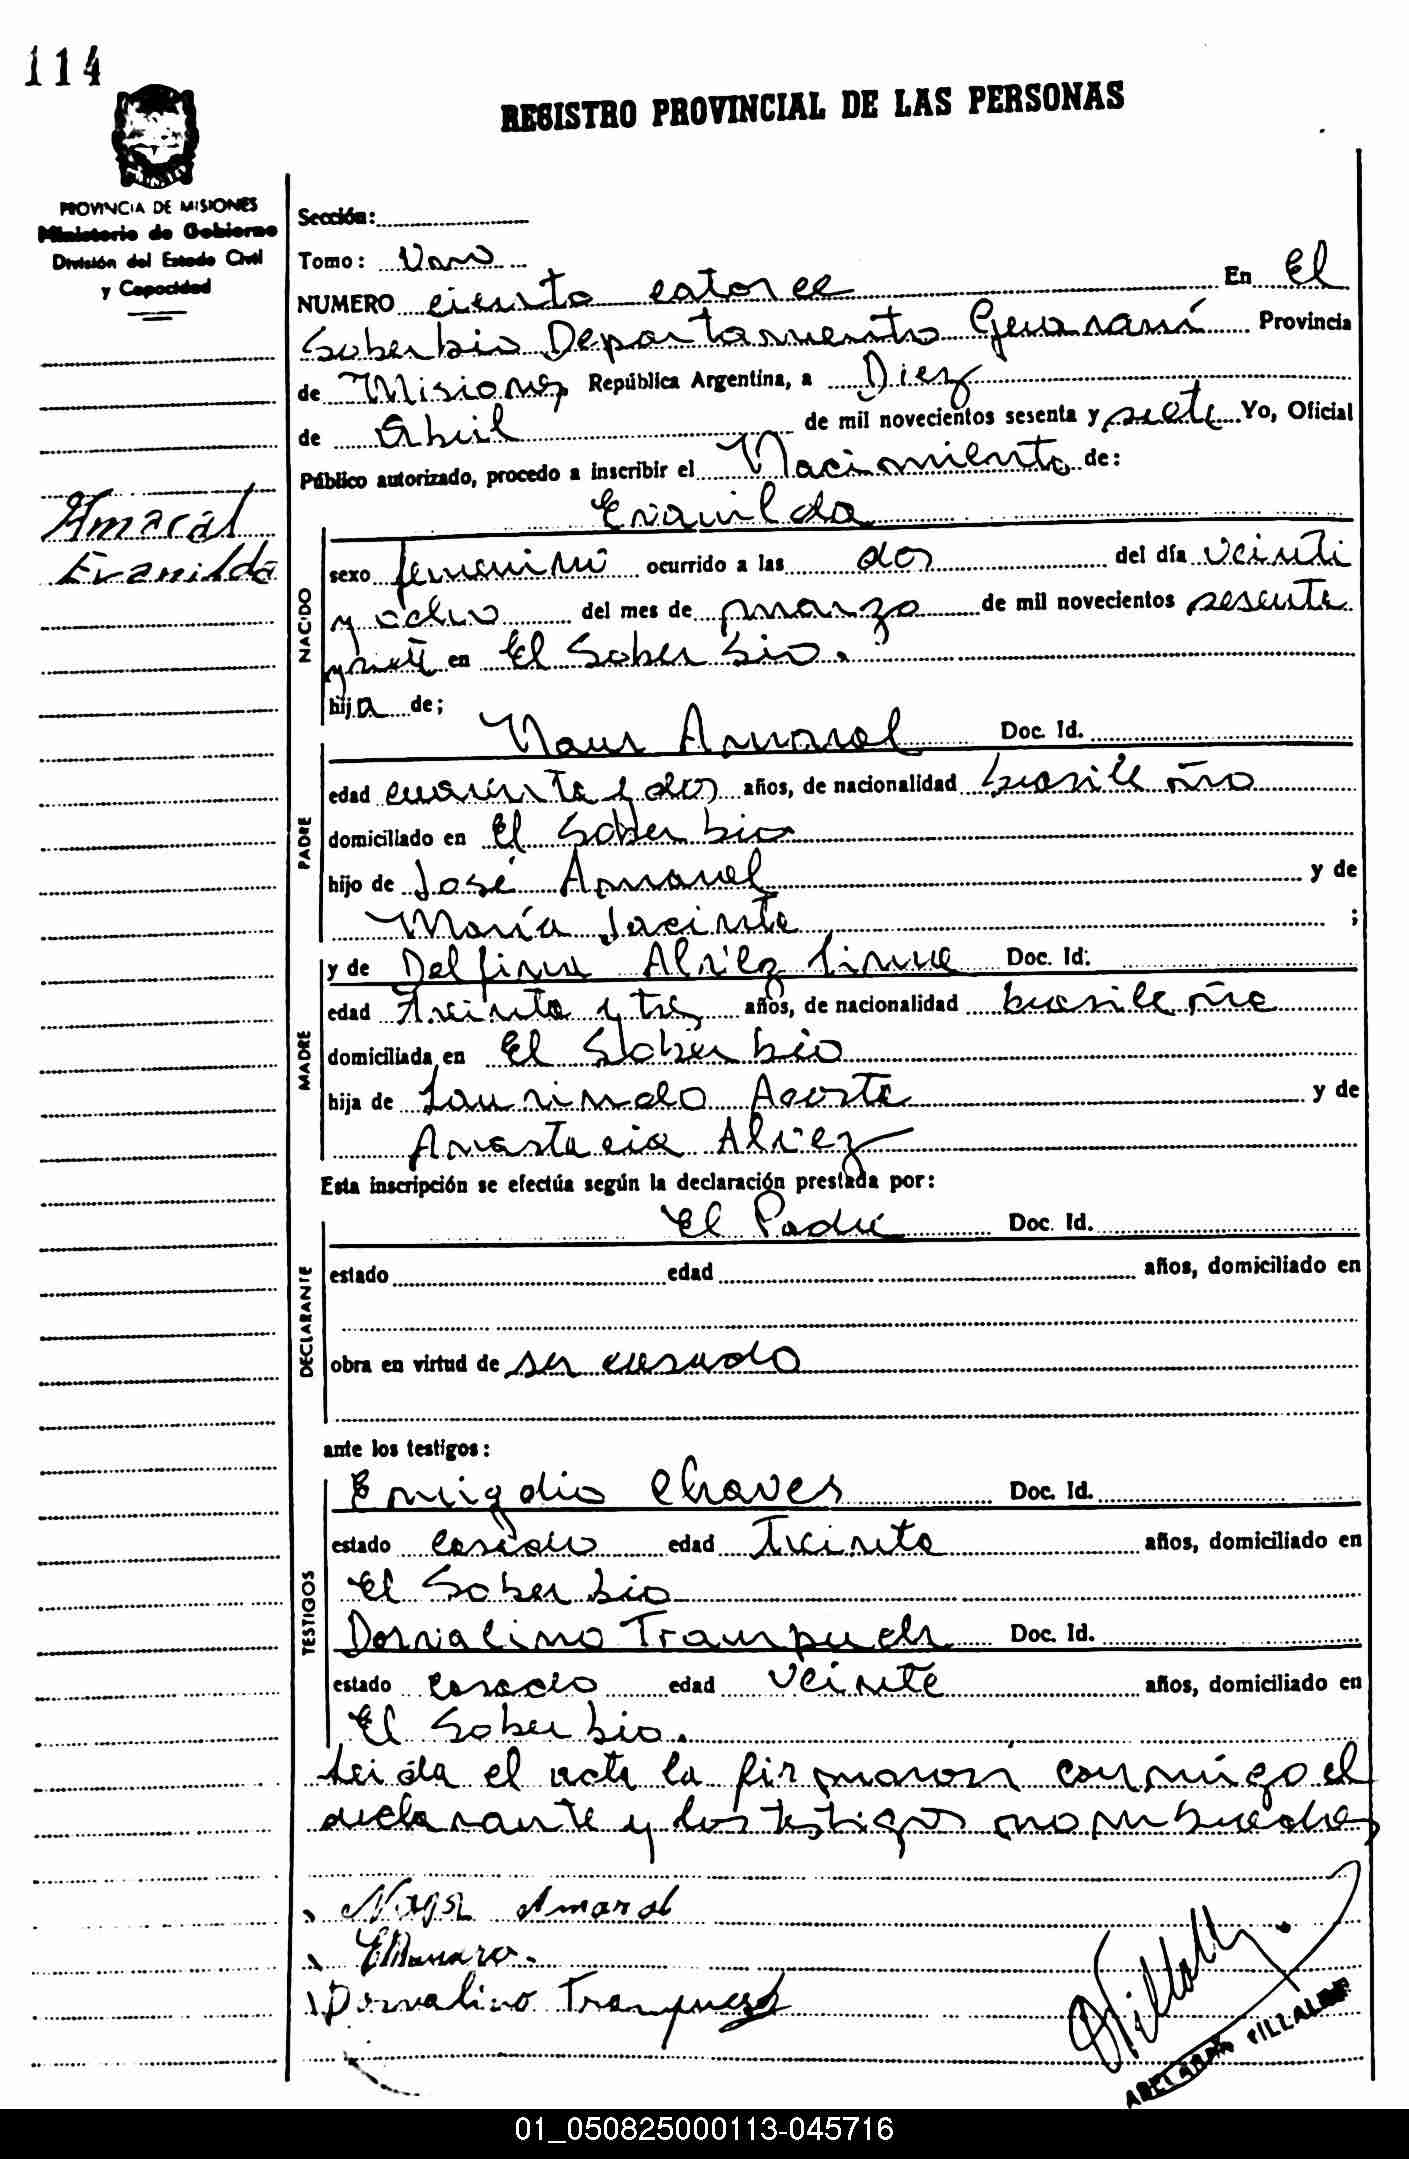 114
REGISTRO PROVINCIAL DE LAS PERSONAS
PROVINCIA DE MISIONES
Ministerio de Gobierno
División del Estado Civil
y Capacidad
Sección:
Tomo: Uno
NUMERO ciento catorce En El
Soberbio Departamento Guaraní Provincia
de Misiones República Argentina, a Diez
de Abril de mil novecientos sesenta y siete Yo, Oficial
Público autorizado, procedo a inscribir el Nacimiento de:
Amaral
Evanilda
Evanilda
NACIDO
sexo femenino ocurrido a las dos del día veinti
y ocho del mes de marzo de mil novecientos sesenta
y siete en El Soberbio.
hija de;
PADRE
Amaral Doc. Id.
edad cuarenta y dos años, de nacionalidad brasileño
domiciliado en El Soberbio
hijo de José Amaral y de
María Jacinta ;
MADRE
y de Delfina Alvez Doc. Id:
edad Treinta y tres años, de nacionalidad brasileña
domiciliada en El Soberbio
hija de Laurindo Acosta y de
Anastacia Alvez
Esta inscripción se efectúa según la declaración prestada por:
DECLARANTE
El Padre Doc. Id.
estado edad años, domiciliado en
obra en virtud de ser casado
ante los testigos:
TESTIGOS
Emigdio Chaves Doc. Id.
estado casado edad Treinta años, domiciliado en
El Soberbio
Dorvalino Doc. Id.
estado casado edad veinte años, domiciliado en
El Soberbio.
Leida el acta la firmaron conmigo el
declarante y los testigos nombrados
Amaral
Dorvalino
VILLALBA
01_050825000113-045716